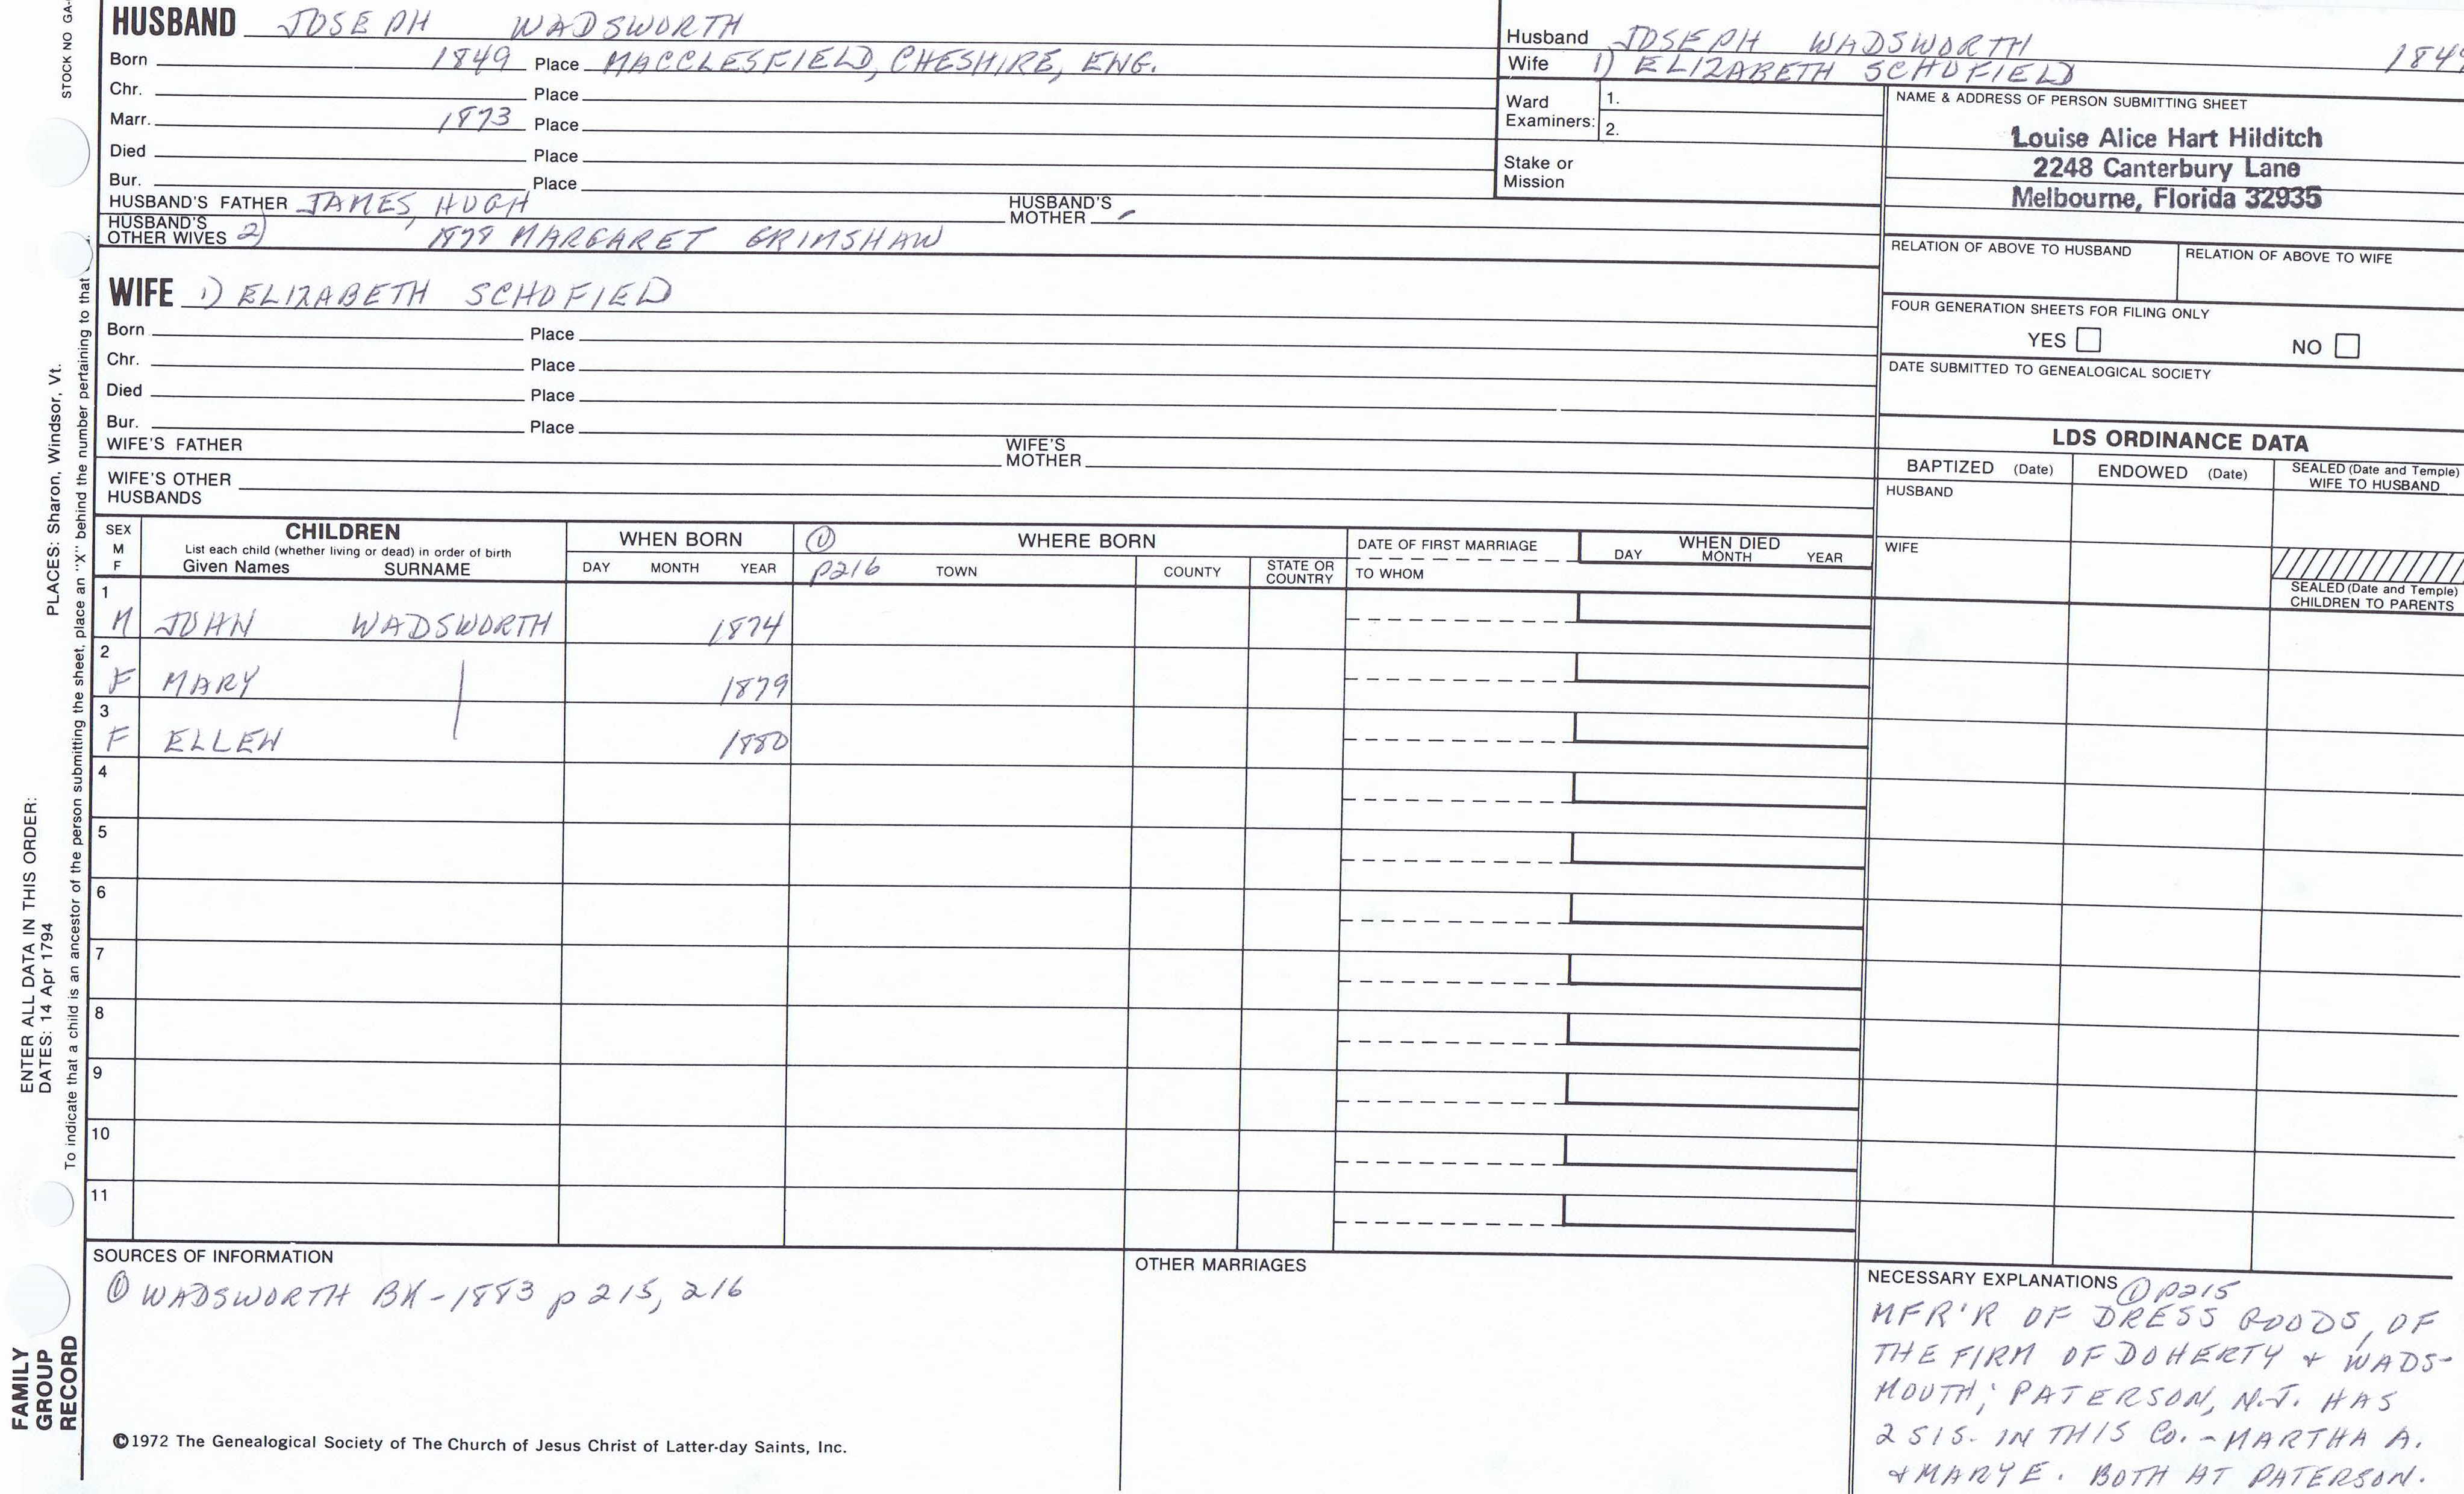 STOCK NO GA-
HUSBAND JOSEPH WADSWORTH
Born 1849 Place MACCLESFIELD, CHESHIRE, ENG.
Chr. Place
Marr. 1873 Place
Died Place
Bur. Place
HUSBAND'S FATHER JAMES, HUGH HUSBAND'S MOTHER
HUSBAND'S OTHER WIVES 2) 1878 MARGARET GRIMSHAW
WIFE 1) ELIZABETH SCHOFIELD
Born Place
Chr. Place
Died Place
Bur. Place
WIFE'S FATHER WIFE'S MOTHER
WIFE'S OTHER HUSBANDS
Husband JOSEPH WADSWORTH 1849
Wife 1) ELIZABETH SCHOFIELD
Ward Examiners: 1.
2.
Stake or Mission
NAME & ADDRESS OF PERSON SUBMITTING SHEET
Louise Alice Hart Hilditch
2248 Canterbury Lane
Melbourne, Florida 32935
RELATION OF ABOVE TO HUSBAND RELATION OF ABOVE TO WIFE
FOUR GENERATION SHEETS FOR FILING ONLY
YES NO
DATE SUBMITTED TO GENEALOGICAL SOCIETY
LDS ORDINANCE DATA
BAPTIZED (Date) ENDOWED (Date) SEALED (Date and Temple) WIFE TO HUSBAND
HUSBAND
WIFE
SEALED (Date and Temple) CHILDREN TO PARENTS
SEX M F CHILDREN WHEN BORN ① WHERE BORN DATE OF FIRST MARRIAGE WHEN DIED
List each child (whether living or dead) in order of birth
Given Names SURNAME DAY MONTH YEAR p216 TOWN COUNTY STATE OR COUNTRY TO WHOM DAY MONTH YEAR
1 M JOHN WADSWORTH 1874
2 F MARY 1879
3 F ELLEN 1880
4
5
6
7
8
9
10
11
SOURCES OF INFORMATION
① WADSWORTH BK-1883 p 215, 216
OTHER MARRIAGES
NECESSARY EXPLANATIONS ① P215
MFR'R OF DRESS GOODS, OF
THE FIRM OF DOHERTY + WADS-
MOUTH; PATERSON, N.J. HAS
2 SIS. IN THIS Co. - MARTHA A.
+ MARY E. BOTH AT PATERSON.
©1972 The Genealogical Society of The Church of Jesus Christ of Latter-day Saints, Inc.
FAMILY
GROUP
RECORD
ENTER ALL DATA IN THIS ORDER:
DATES: 14 Apr 1794
PLACES: Sharon, Windsor, Vt.
To indicate that a child is an ancestor of the person submitting the sheet, place an "X" behind the number pertaining to that